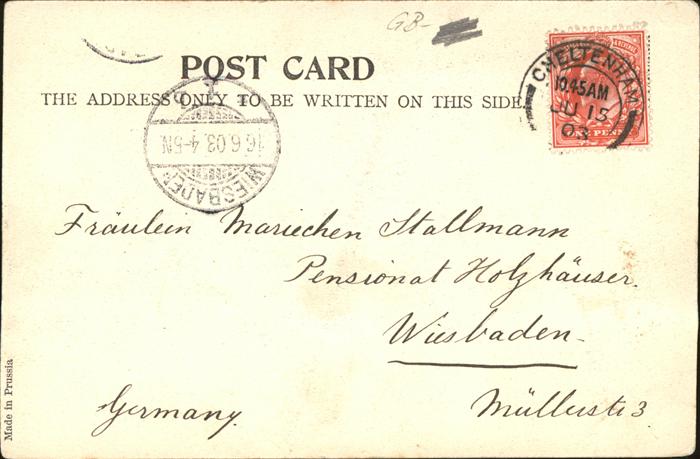 GB-
POST CARD
THE ADDRESS ONLY TO BE WRITTEN ON THIS SIDE
CHELTENHAM
10.45AM
JU 15
03
ONE PENNY
16.6.03.4-5N
WIESBADEN
Fräulein Mariechen Stallmann
Pensionat Holzhäuser.
Wiesbaden
Germany.
Müllerstr 3
Made in Prussia